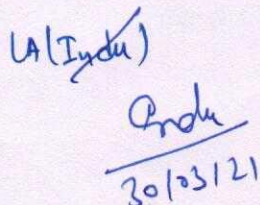 LA (Indu)
Indu
30/03/21